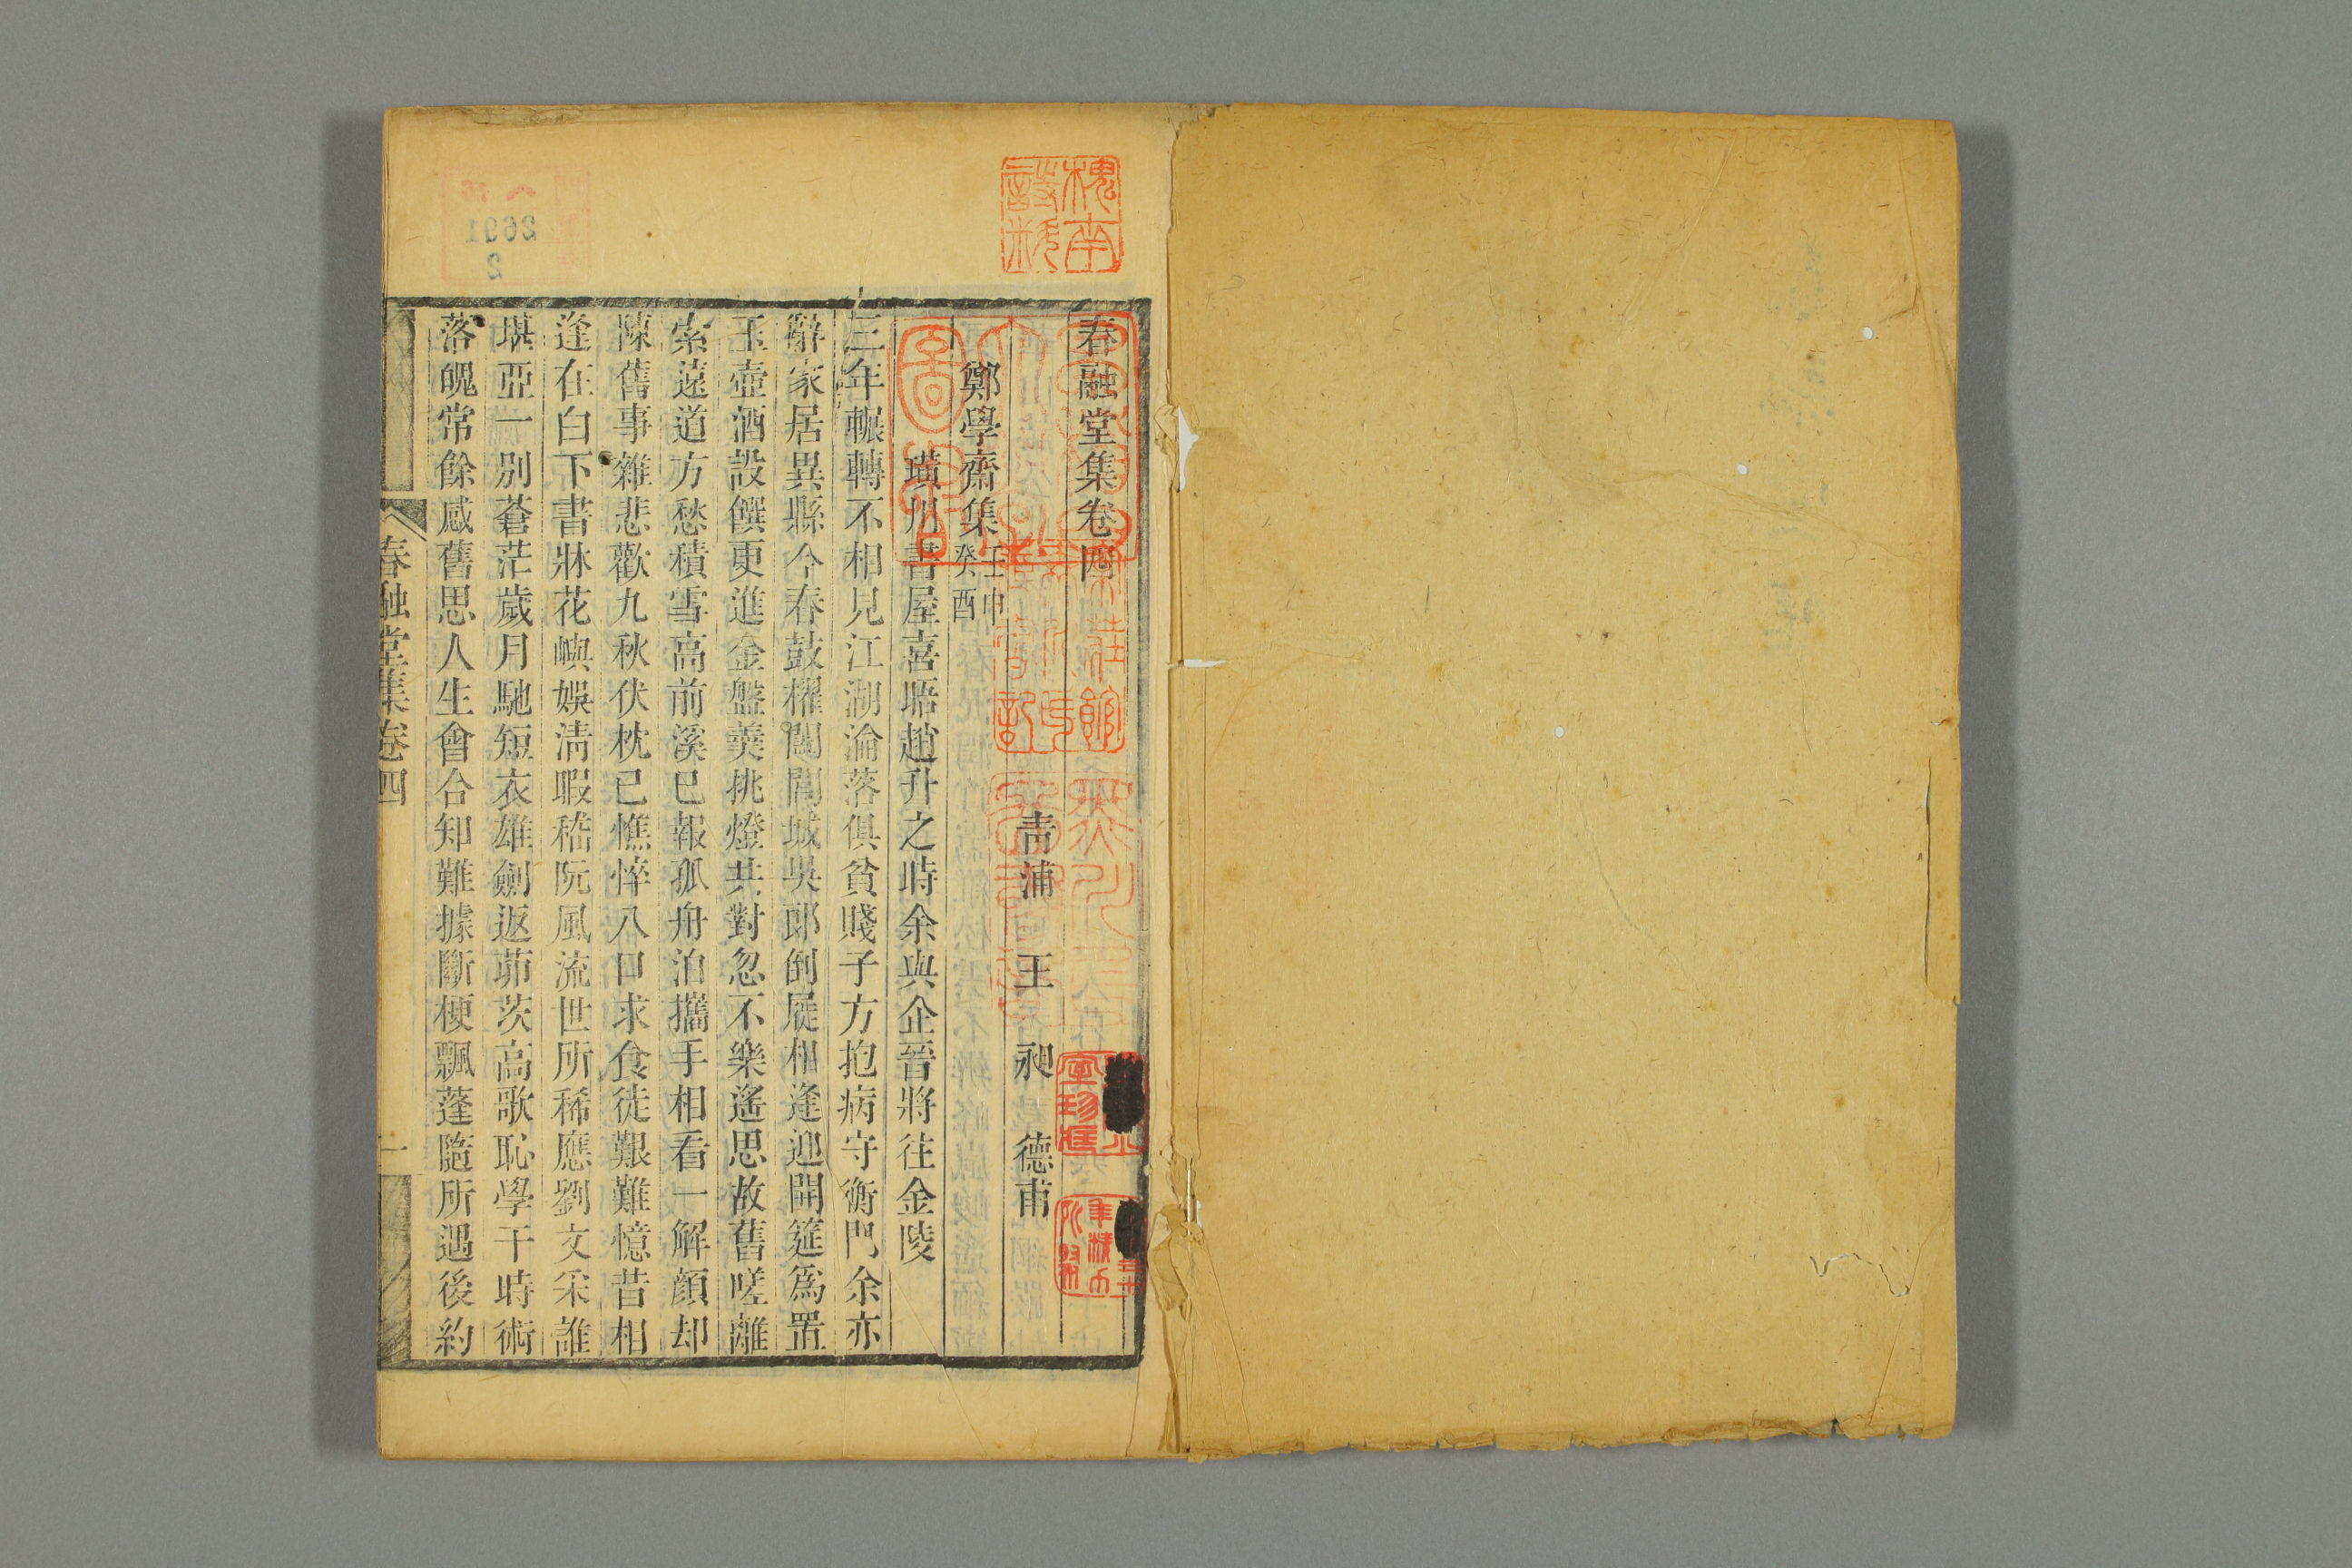 春融堂集卷四
青浦　王　昶　德甫
鄭學齋集 壬申 癸酉
璜川書屋喜晤趙升之時余與企晉將往金陵
三年輾轉不相見江湖淪落俱貧賤子方抱病守衡門余亦
辭家居異縣今春鼓櫂闔閭城吳郎倒屣相逢迎開筵爲置
玉壺酒設饌更進金盤羹挑燈共對忽不樂遙思故舊嗟離
索遠道方愁積雪高前溪已報孤舟泊攜手相看一解顏却
陳舊事雜悲歡九秋伏枕已憔悴八口求食徒艱難憶昔相
逢在白下書牀花嶼娛淸暇嵇阮風流世所稀應劉文采誰
堪亞一別蒼茫歲月馳短衣雄劍返茆茨高歌恥學干時術
落魄常餘感舊思人生會合知難據斷梗飄蓬隨所遇後約
春融堂集卷四
一
槐南詩料
2691
2